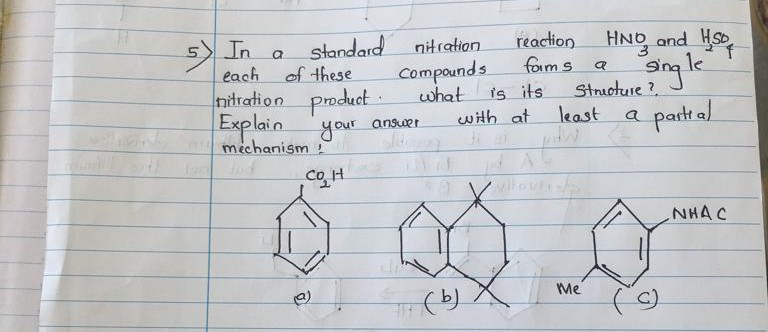 5) In a standard nitration reaction HNO3 and H2SO4
each of these compounds forms a single
nitration product. what is its Structure?.
Explain your answer with at least a partial
mechanism!
CO2H
NHAC
Me
(a) (b) (C)